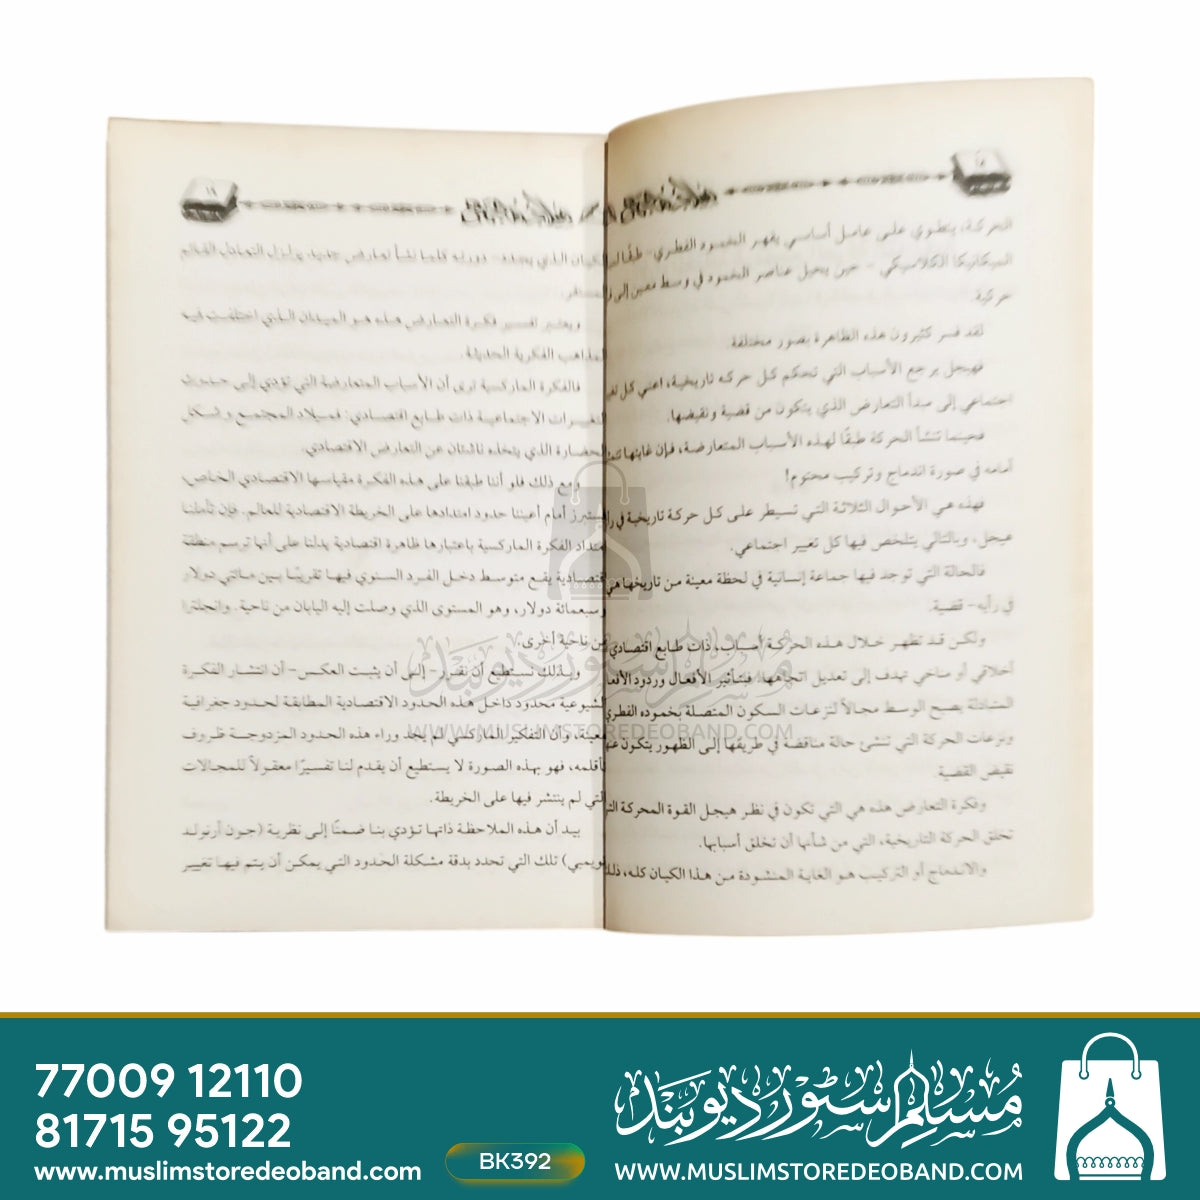 الحركة، ينطوي على عامل أساسي يقهر الخمود الفطري- طبقًا
الميكانيكا الكلاسيكي - حين يحيل عناصر الخمود في وسط معين إلى
حركية.
لقد فسر كثيرون هذه الظاهرة بصور مختلفة.
فهيجل يرجع الأسباب التي تحكم كل حركة تاريخية، أعني كل
اجتماعي إلى مبدأ التعارض الذي يتكون من قضية ونقيضها.
فحينما تنشأ الحركة طبقًا لهذه الأسباب المتعارضة، فإن غايتها
أمامه في صورة اندماج وتركيب محتوم!
فهذه هي الأحوال الثلاثة التي تسيطر على كل حركة تاريخية في
هيجل، وبالتالي يتلخص فيها كل تغيير اجتماعي.
فالحالة التي توجد فيها جماعة إنسانية في لحظة معينة من تاريخها هي
في رأيه- قضية.
ولكن قد تظهر خلال هذه الحركة أسباب، ذات طابع اقتصادي
أخلاقي أو مناخي تهدف إلى تعديل اتجاهها، فبتأثير الأفعال وردود
المتبادلة يصبح الوسط مجالاً لنزعات السكون المتصلة بخموده الفطري
ونزعات الحركة التي تنشئ حالة مناقضة في طريقها إلى الظهور يتكون
نقيض القضية.
وفكرة التعارض هذه هي التي تكون في نظر هيجل القوة المحركة
تخلق الحركة التاريخية، التي من شأنها أن تخلق أسبابها.
والاندماج أو التركيب هو الغاية المنشودة من هذا الكيان كله،
١٨
الكيان الذي يتجدد- دورياً كلما نشأ تعارض جديد يزلزل التعادل القائم
المستقر.
ويعتبر تفسير فكرة التعارض هذه هو الميدان الذي اختلفت فيه
المذاهب الفكرية الحديثة.
فالفكرة الماركسية ترى أن الأسباب المتعارضة التي تؤدي إلى حدوث
التغييرات الاجتماعية ذات طابع اقتصادي: فميلاد المجتمع وشكل
الحضارة الذي يتخذه ناشئان عن التعارض الاقتصادي.
ومع ذلك فلو أننا طبقنا على هذه الفكرة مقياسها الاقتصادي الخاص،
أمام أعيننا حدود امتدادها على الخريطة الاقتصادية للعالم. فإن تأملنا
امتداد الفكرة الماركسية باعتبارها ظاهرة اقتصادية يدلنا على أنها ترسم منطقة
اقتصادية يقع متوسط دخل الفرد السنوي فيها تقريبًا بين مائتي دولار
وسبعمائة دولار، وهو المستوى الذي وصلت إليه اليابان من ناحية. وانجلترا
من ناحية أخرى.
وبذلك نستطيع أن نقرر- إلى أن يثبت العكس- أن انتشار الفكرة
الشيوعية محدود داخل هذه الحدود الاقتصادية المطابقة لحدود جغرافية
معينة، وأن التفكير الماركسي لم يجد وراء هذه الحدود المزدوجة ظروف
تأقلمه، فهو بهذه الصورة لا يستطيع أن يقدم لنا تفسيرًا معقولاً للمجالات
التي لم ينتشر فيها على الخريطة.
بيد أن هذه الملاحظة ذاتها تؤدي بنا ضمنًا إلى نظرية (جون أرنولد
تويمبي) تلك التي تحدد بدقة مشكلة الحدود التي يمكن أن يتم فيها تغيير
مسلم ستور ديوبند
WWW.MUSLIMSTOREDEOBAND.COM
77009 12110
81715 95122
www.muslimstoredeoband.com
BK392
مسلم ستور ديوبند
WWW.MUSLIMSTOREDEOBAND.COM